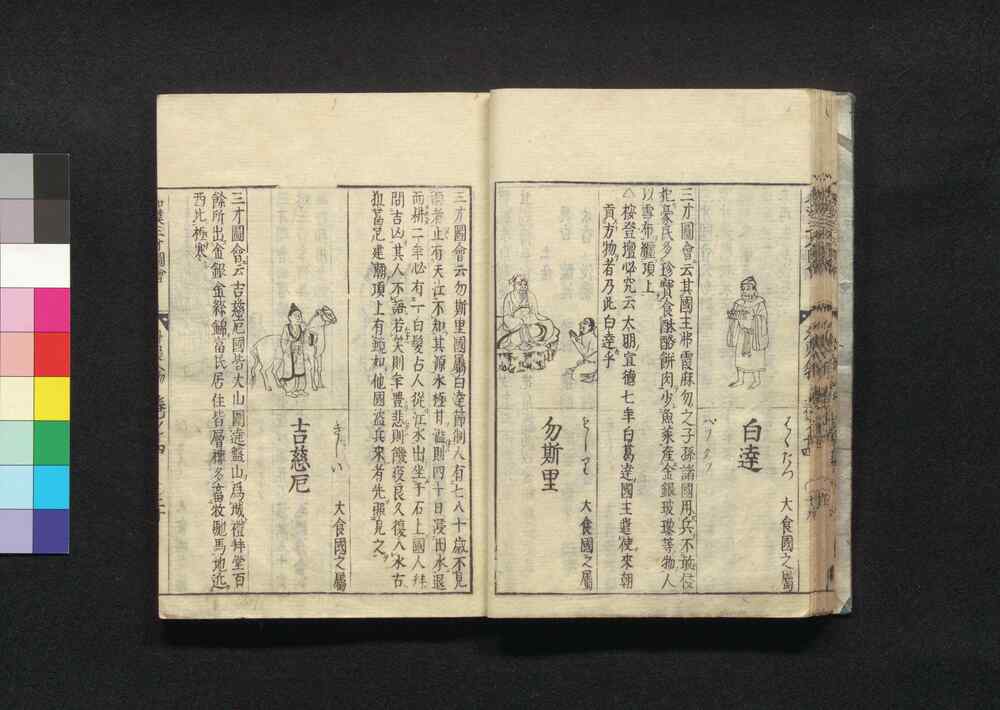 白達
はくたつ
大食國之屬
三才圖會云其國主弗霞麻勿之子孫諸國用兵不敢侵
犯豪民多珍寳食酥酪餅肉少魚菜産金銀玻瓈等物人
以雪布纏項上
△按登壇必究云大明宣德七年白葛達國主遣使來朝
貢方物者乃此白達乎
勿斯里
大食國之屬
三才圖會云勿斯里國屬白達節制人有七八十歳不見
雨者止有天江不知其源水極甘溢則四十日浸田水退
而耕二年必有一白髮占人從江水出坐于石上國人拜
問吉凶其人不語若笑則年豐悲則饑疫良久復入水古
狙葛尼建廟頂上有鏡如他國盗兵來者先照見之
吉慈厄
大食國之屬
三才圖會云吉慈厄國皆大山圍遶盤山爲城禮拜堂百
餘所出金銀金絲錦富民居住皆層樓多畜牧駝馬地近
西北極寒